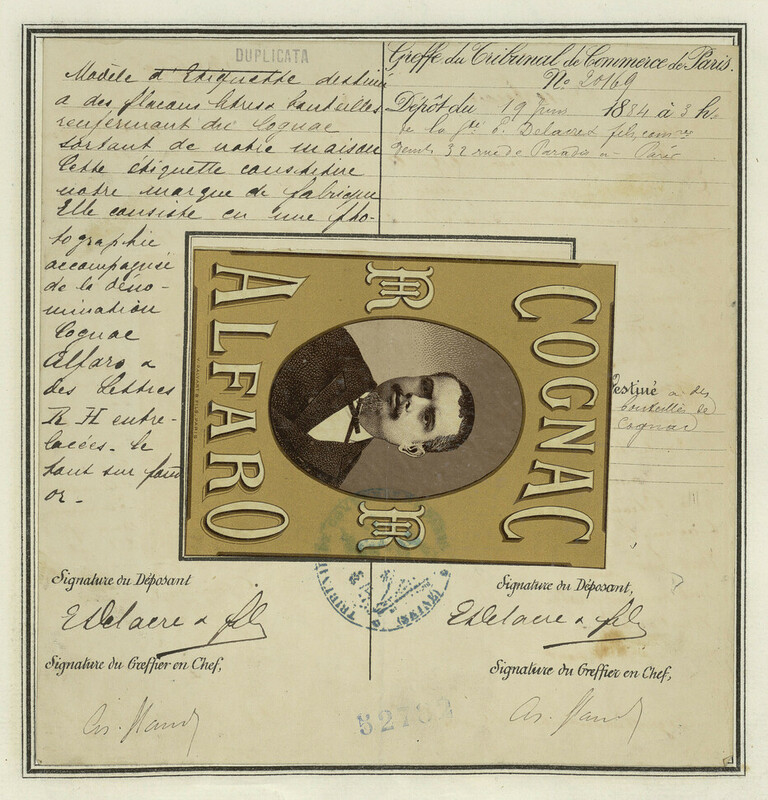 DUPLICATA
Modèle d'Etiquette destiné
a des flacons litres bouteilles
renfermant du Cognac
sortant de notre maison
Cette étiquette constitue
notre marque de fabrique
Elle consiste en une pho-
tographie
accompagnée
de la déno-
mination
Cognac
Alfaro &
des lettres
R H entre-
lacées. le
tout sur fond
or.
Greffe du Tribunal de Commerce de Paris.
No 20169
Dépôt du 19 Juin 1884 à 3 h.
de la Sté E. Delacre & fils,
32 rue de Paradis a Paris
COGNAC
ALFARO
RH
RH
Destiné a des
bouteilles de
Cognac
Signature du Déposant
E Delacre & fils
Signature du Greffier en Chef,
Signature du Déposant,
E Delacre & fils
Signature du Greffier en Chef,